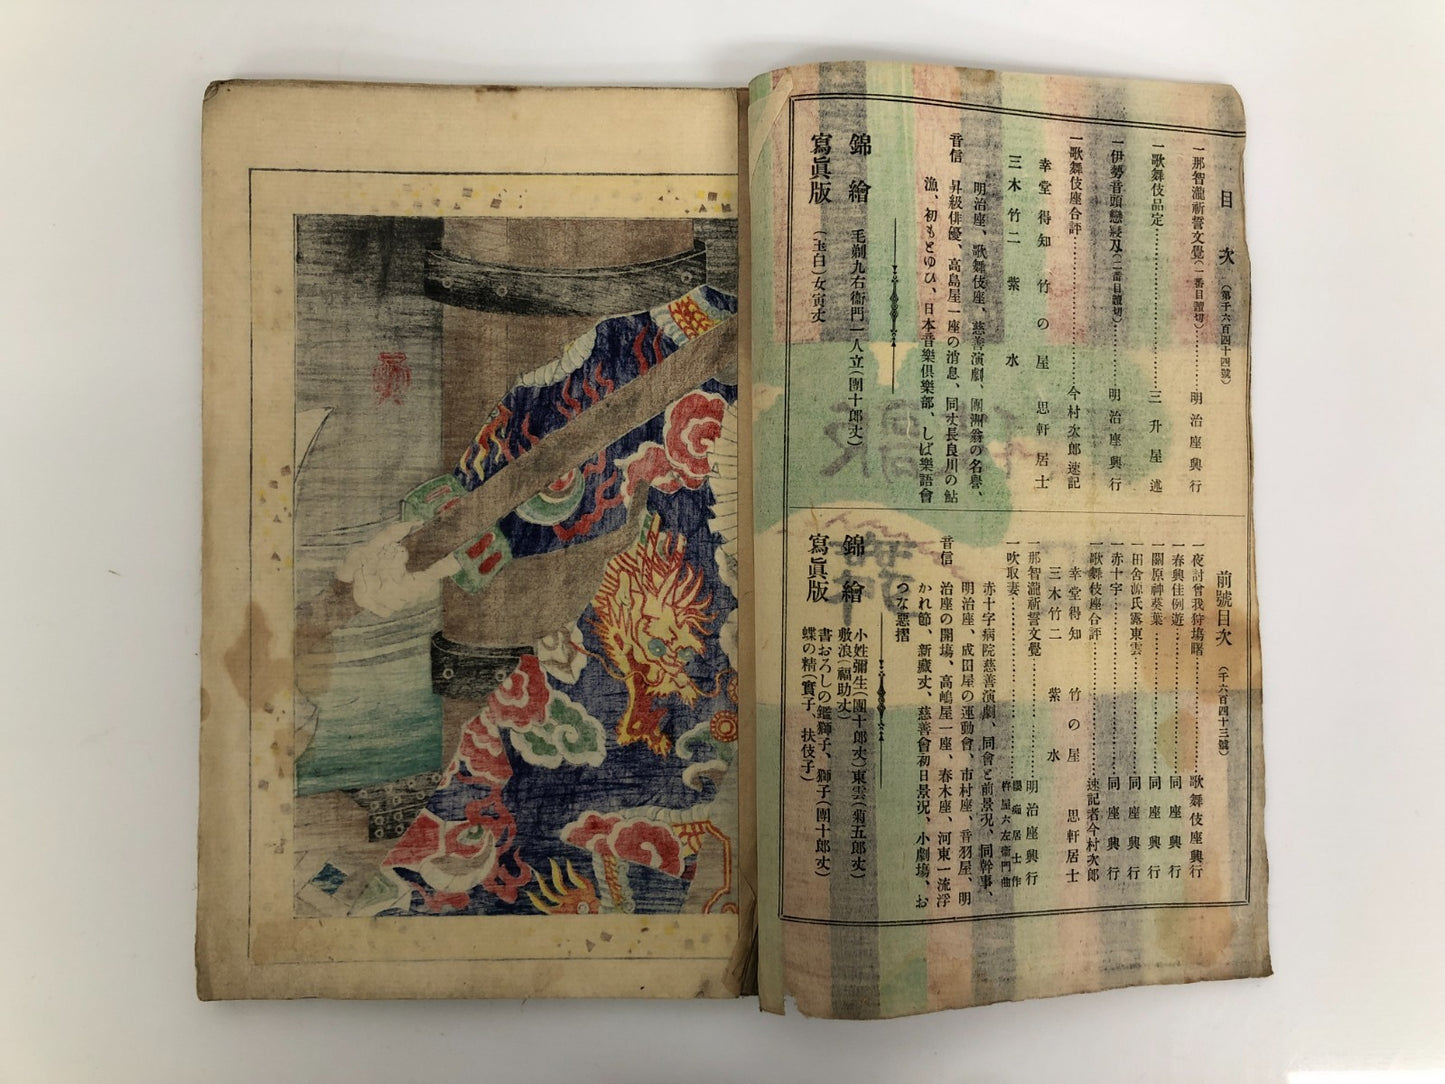 目次（第千六百四十四號）
一那智瀧祈誓文覺（一番目體切）………明治座興行
一歌舞伎品定………三升屋述
一伊勢音頭戀寢刄（二番目體切）………明治座興行
一歌舞伎座合評………今村次郎速記
幸堂得知 竹の屋 思軒居士
三木竹二 紫水
音信 明治座、歌舞伎座、慈善演劇、團洲翁の名譽、
昇級俳優、高島屋一座の消息、同丈長良川の鮎
漁、初もとゆひ、日本音樂倶樂部、しば樂語會
錦繪 毛剃九右衞門一人立（團十郎丈）
寫眞版 （玉白）女寅丈
前號目次（千六百四十三號）
一夜討曾我狩塲曙………歌舞伎座興行
一春興佳例遊………同座興行
一關原神葵葉………同座興行
一田舍源氏露東雲………同座興行
一赤十字………同座興行
一歌舞伎座合評………速記者今村次郎
幸堂得知 竹の屋 思軒居士
三木竹二 紫水
一那智瀧祈誓文覺………明治座興行
一吹取妻………居士作 杵屋六左衞門曲
音信 赤十字病院慈善演劇、同會と前景况、同幹事、
明治座、成田屋の運動會、市村座、音羽屋、明
治座の開塲、高嶋屋一座、春木座、河東一流浮
かれ節、新藏丈、慈善會初日景况、小劇塲、お
つな惡摺
錦繪 小姓彌生（團十郎丈）東雲（菊五郎丈）
敷浪（福助丈）
寫眞版 書おろしの鑑獅子、獅子（團十郎丈）
蝶の精（實子、扶伎子）